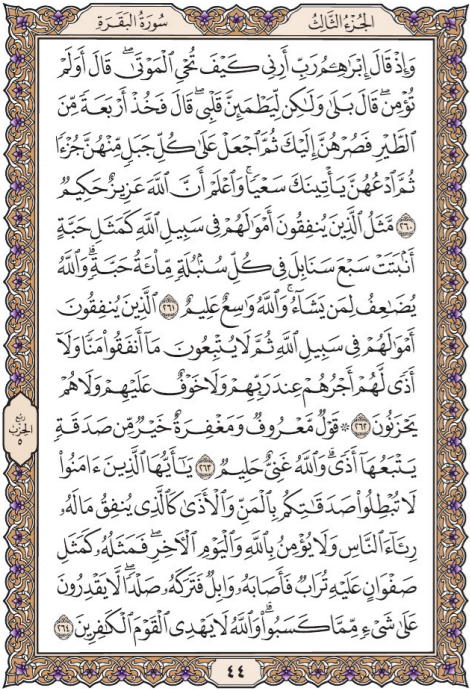 الجزء الثالث
سورة البقرة
وَإِذْ قَالَ إِبْرَٰهِـۧمُ رَبِّ أَرِنِى كَيْفَ تُحْىِ ٱلْمَوْتَىٰ ۖ قَالَ أَوَلَمْ
تُؤْمِن ۖ قَالَ بَلَىٰ وَلَـٰكِن لِّيَطْمَئِنَّ قَلْبِى ۖ قَالَ فَخُذْ أَرْبَعَةً مِّنَ
ٱلطَّيْرِ فَصُرْهُنَّ إِلَيْكَ ثُمَّ ٱجْعَلْ عَلَىٰ كُلِّ جَبَلٍ مِّنْهُنَّ جُزْءًا
ثُمَّ ٱدْعُهُنَّ يَأْتِينَكَ سَعْيًا ۚ وَٱعْلَمْ أَنَّ ٱللَّهَ عَزِيزٌ حَكِيمٌ
٢٦٠ مَّثَلُ ٱلَّذِينَ يُنفِقُونَ أَمْوَٰلَهُمْ فِى سَبِيلِ ٱللَّهِ كَمَثَلِ حَبَّةٍ
أَنۢبَتَتْ سَبْعَ سَنَابِلَ فِى كُلِّ سُنۢبُلَةٍ مِّا۟ئَةُ حَبَّةٍ ۗ وَٱللَّهُ
يُضَـٰعِفُ لِمَن يَشَآءُ ۗ وَٱللَّهُ وَٰسِعٌ عَلِيمٌ ٢٦١ ٱلَّذِينَ يُنفِقُونَ
أَمْوَٰلَهُمْ فِى سَبِيلِ ٱللَّهِ ثُمَّ لَا يُتْبِعُونَ مَآ أَنفَقُوا۟ مَنًّا وَلَآ
أَذًى ۙ لَّهُمْ أَجْرُهُمْ عِندَ رَبِّهِمْ وَلَا خَوْفٌ عَلَيْهِمْ وَلَا هُمْ
يَحْزَنُونَ ٢٦٢ ۞ قَوْلٌ مَّعْرُوفٌ وَمَغْفِرَةٌ خَيْرٌ مِّن صَدَقَةٍ
يَتْبَعُهَآ أَذًى ۗ وَٱللَّهُ غَنِىٌّ حَلِيمٌ ٢٦٣ يَـٰٓأَيُّهَا ٱلَّذِينَ ءَامَنُوا۟
لَا تُبْطِلُوا۟ صَدَقَـٰتِكُم بِٱلْمَنِّ وَٱلْأَذَىٰ كَٱلَّذِى يُنفِقُ مَالَهُۥ
رِئَآءَ ٱلنَّاسِ وَلَا يُؤْمِنُ بِٱللَّهِ وَٱلْيَوْمِ ٱلْـَٔاخِرِ ۖ فَمَثَلُهُۥ كَمَثَلِ
صَفْوَانٍ عَلَيْهِ تُرَابٌ فَأَصَابَهُۥ وَابِلٌ فَتَرَكَهُۥ صَلْدًا ۖ لَّا يَقْدِرُونَ
عَلَىٰ شَىْءٍ مِّمَّا كَسَبُوا۟ ۗ وَٱللَّهُ لَا يَهْدِى ٱلْقَوْمَ ٱلْكَـٰفِرِينَ ٢٦٤
ربع
الحزب
٥
٤٤